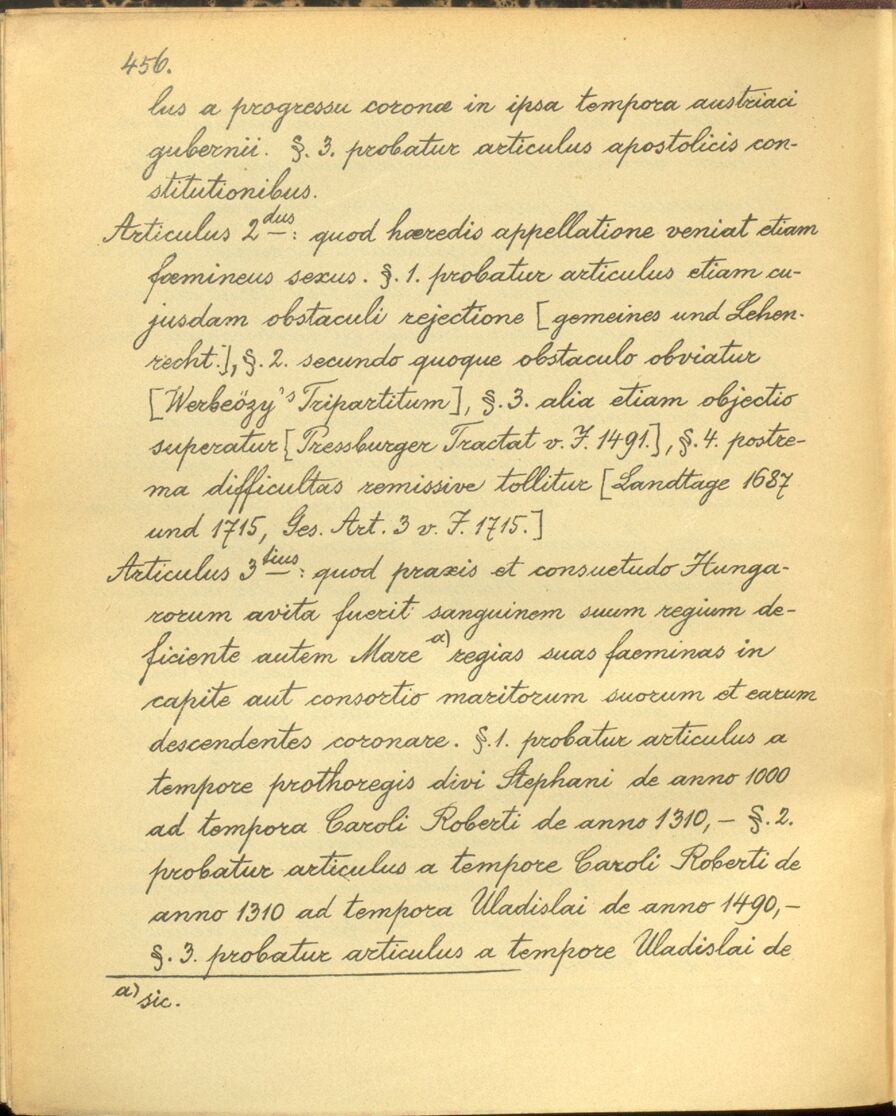 456.
lus a progressu coronæ in ipsa tempora austriaci
gubernii. §. 3. probatur articulus apostolicis con-
stitutionibus.
Articulus 2dus: quod hæredis appellatione veniat etiam
fœmineus sexus. §. 1. probatur articulus etiam cu-
jusdam obstaculi rejectione [gemeines und Lehen-
recht.], §. 2. secundo quoque obstaculo obviatur
[Werbeözy's Tripartitum], §. 3. alia etiam objectio
superatur [Pressburger Tractat v. J. 1491.], §. 4. postre-
ma difficultas remissive tollitur [Landtage 1687
und 1715, Ges. Art. 3 v. J. 1715.]
Articulus 3tius: quod praxis et consuetudo Hunga-
rorum avita fuerit sanguinem suum regium de-
ficiente autem Mare a) regias suas faeminas in
capite aut consortio maritorum suorum et earum
descendentes coronare. §. 1. probatur articulus a
tempore prothoregis divi Stephani de anno 1000
ad tempora Caroli Roberti de anno 1310, – §. 2.
probatur articulus a tempore Caroli Roberti de
anno 1310 ad tempora Uladislai de anno 1490, –
§. 3. probatur articulus a tempore Uladislai de
a) sic.